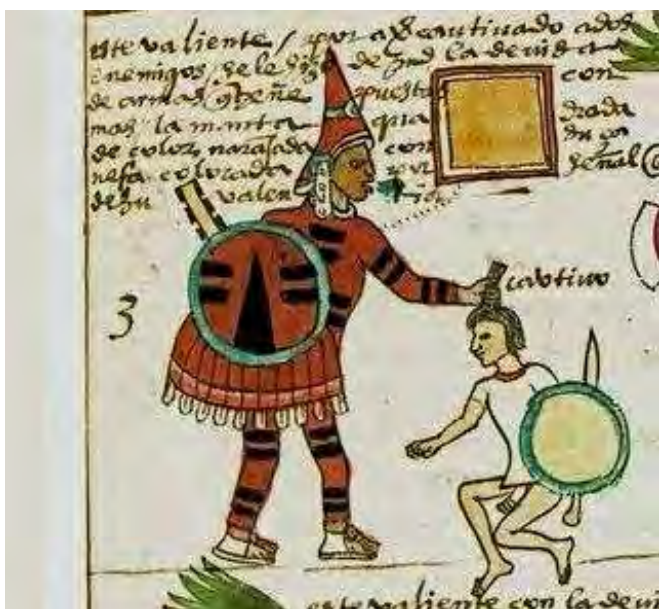 este valiente / por aver cautivado a dos
enemigos, se le dizo de su la devisa
de armas q̃ tiene puesta con
mas la manta quadrada
de color naranjada con su ce
nefa colorada por señal
de su valen tia
cautivo
3
este valiente con la devi